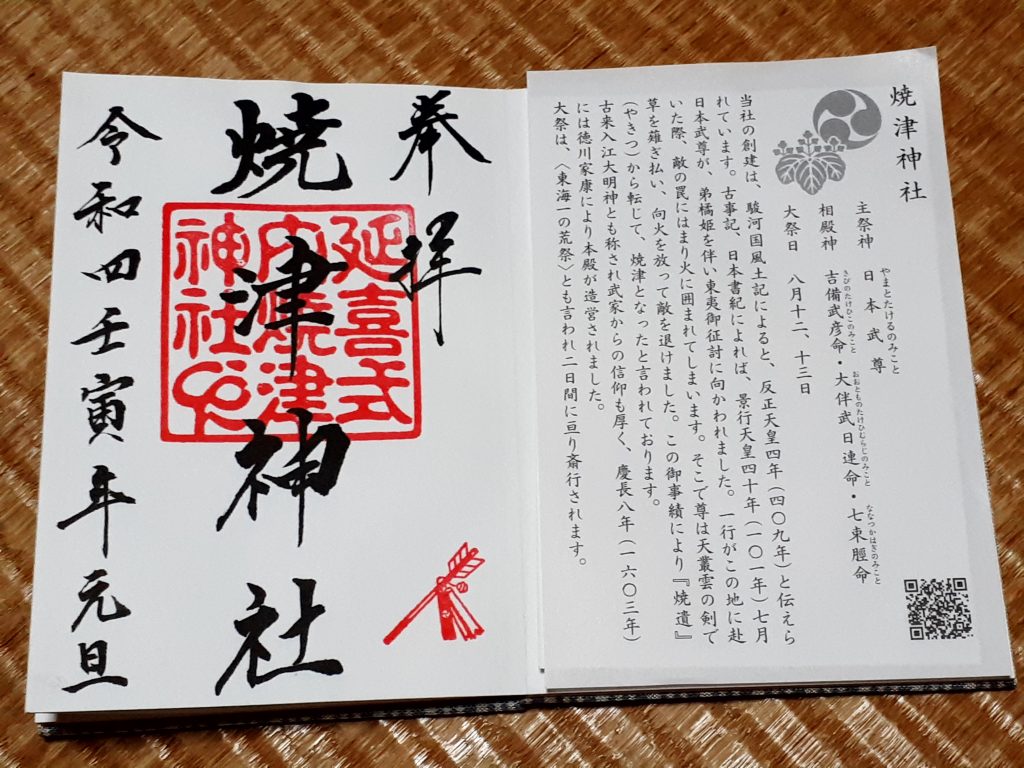 焼津神社
やまとたけるのみこと
主祭神 日本武尊
きびのたけひこのみこと おおとものたけひむらじのみこと ななつかはぎのみこと
相殿神 吉備武彦命・大伴武日連命・七束脛命
大祭日 八月十二、十三日
当社の創建は、駿河国風土記によると、反正天皇四年(四〇九年)と伝えら
れています。古事記、日本書紀によれば、景行天皇四十年(一〇一年)七月
日本武尊が、弟橘姫を伴い東夷御征討に向かわれました。一行がこの地に赴
いた際、敵の罠にはまり火に囲まれてしまいます。そこで尊は天叢雲の剣で
草を薙ぎ払い、向火を放って敵を退けました。この御事績により『焼遺』
(やきつ)から転じて、焼津となったと言われております。
古来入江大明神とも称され武家からの信仰も厚く、慶長八年(一六〇三年)
には徳川家康により本殿が造営されました。
大祭は、〈東海一の荒祭〉とも言われ二日間に亘り斎行されます。
奉拝
焼津神社
延喜式
内焼津
神社印
令和四壬寅年元旦